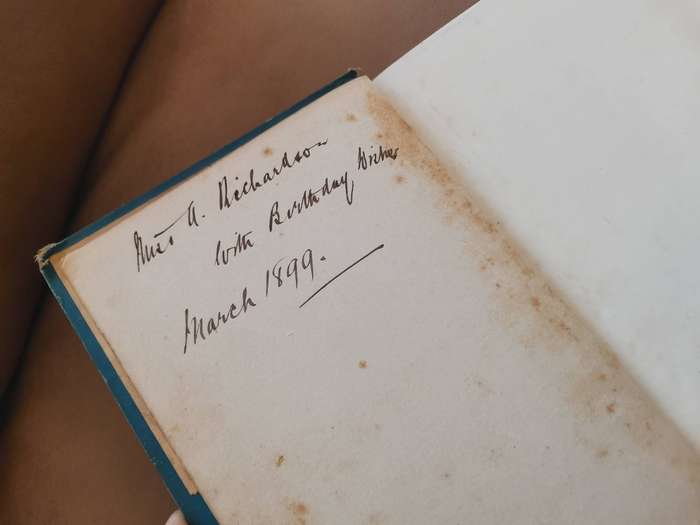 Miss A. Richardson
With Birthday Wishes
March 1899.